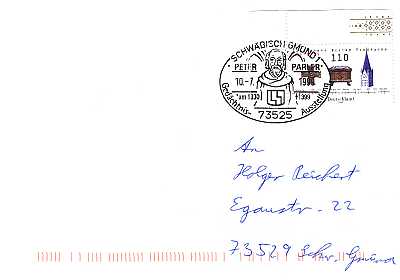 SCHWÄBISCH GMÜND 1
PETER PARLER
110
10.-7. 1999
*um 1330 †1399
Gedächtnis- Ausstellung
73525
Deutschland
An
Holger Reichert
Egaustr. 22
73529 Schw. Gmünd